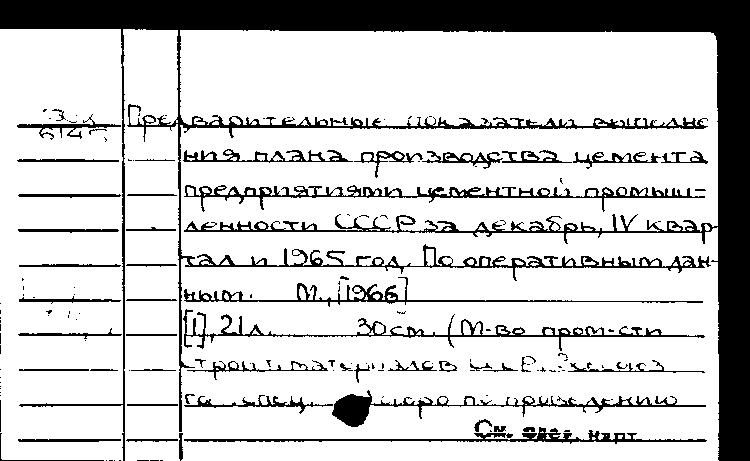 6145 Предварительные показатели выполне
ния плана производства цемента
предприятиями цементной промыш-
ленности СССР за декабрь, IV квар-
тал и 1965 год. По оперативным дан-
ным. М., [1966]
[1], 21 л. 30 см. (М-во пром-сти
строит. материалов СССР.
спец. бюро по приведению
См. след. карт